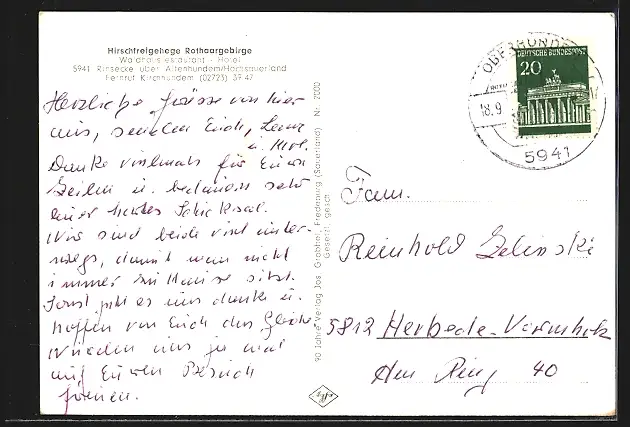 Hirschfreigehege Rothaargebirge
Waldhaus estaurant - Hotel
5941 Rinsecke über Altenhundem/Hochsauerland
Fernruf Kirchhundem (02723) 39 47
Herzliche Grüsse von hier
aus, senden Euch, Lenz
u. Mel.
Danke vielmals für Euren
Zeilen u. bedauern sehr
euer hartes Schicksal.
Wir sind beide viel unter-
wegs, damit man nicht
immer zu Hause sitzt.
Sonst geht es uns danke u.
hoffen von Euch das Gleiche
Würden uns ja mal
auf Euren Besuch
freuen.
90 Jahre Verlag Jos Grobbel, Fredeburg (Sauerland) Nr. 2000
Gesetzl. gesch.
DEUTSCHE BUNDESPOST
20
18.9
5941
Fam.
Reinhold Zelinski
5812 Herbede-Vormholz
Am Ring 40